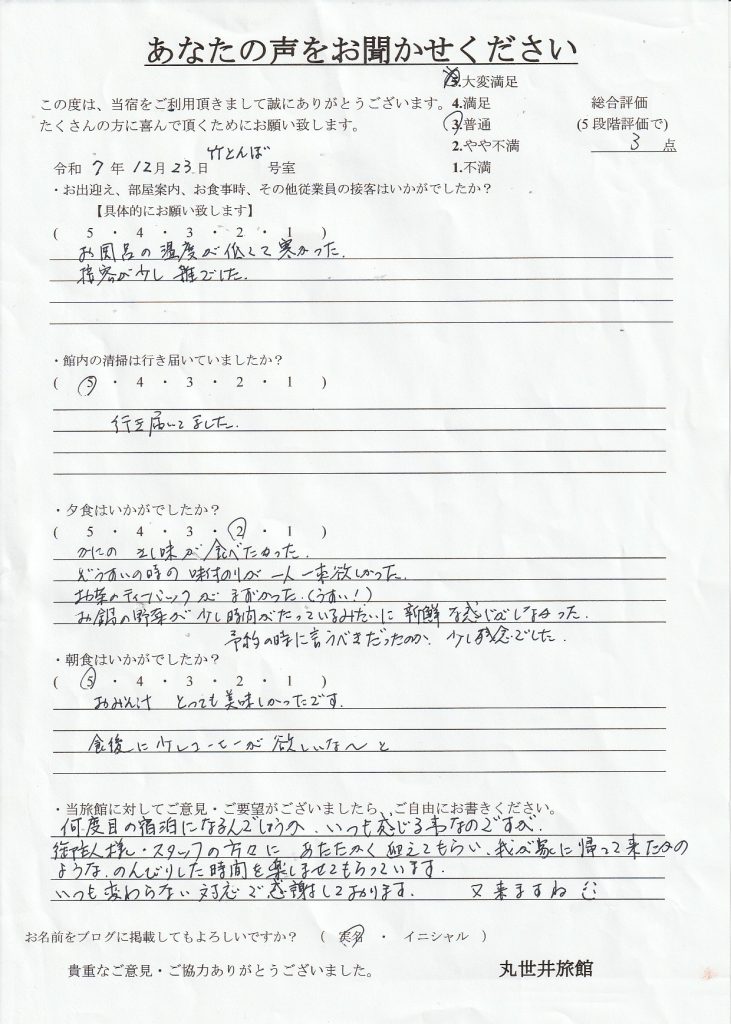 あなたの声をお聞かせください
5.大変満足
この度は、当宿をご利用頂きまして誠にありがとうございます。 4.満足 総合評価
たくさんの方に喜んで頂くためにお願い致します。 3.普通 (5段階評価で)
2.やや不満 3 点
令和 7 年 12月 23日 竹とんぼ 号室 1.不満
・お出迎え、部屋案内、お食事時、その他従業員の接客はいかがでしたか?
【具体的にお願い致します】
( 5 ・ 4 ・ 3 ・ 2 ・ 1 )
お風呂の温度が低くて寒かった.
接客が少し雑でした.
・館内の清掃は行き届いていましたか?
( 5 ・ 4 ・ 3 ・ 2 ・ 1 )
行き届いてました.
・夕食はいかがでしたか?
( 5 ・ 4 ・ 3 ・ 2 ・ 1 )
かにの 味が食べたかった.
ぞうすいの時の味付のりが一人一本欲しかった.
お茶のティーパックがまずかった.(うすい!)
お鍋の野菜が少し時間がたっているみたいに新鮮な感じがしなかった.
予約の時に言うべきだったのか、少し残念でした.
・朝食はいかがでしたか?
( 5 ・ 4 ・ 3 ・ 2 ・ 1 )
おみそ汁 とっても美味しかったです.
食後に少しコーヒーが欲しいな〜と
・当旅館に対してご意見・ご要望がございましたら、ご自由にお書きください。
何度目の宿泊になるんでしょうか、いつも感じる事なのですが、
様・スタッフの方々に あたたかく迎えてもらい、我が家に帰って来たかの
ような、のんびりした時間を楽しませてもらっています.
いつも変わらない対応で感謝しております. 又来ますね
お名前をブログに掲載してもよろしいですか? ( 実名 ・ イニシャル )
貴重なご意見・ご協力ありがとうございました。 丸世井旅館